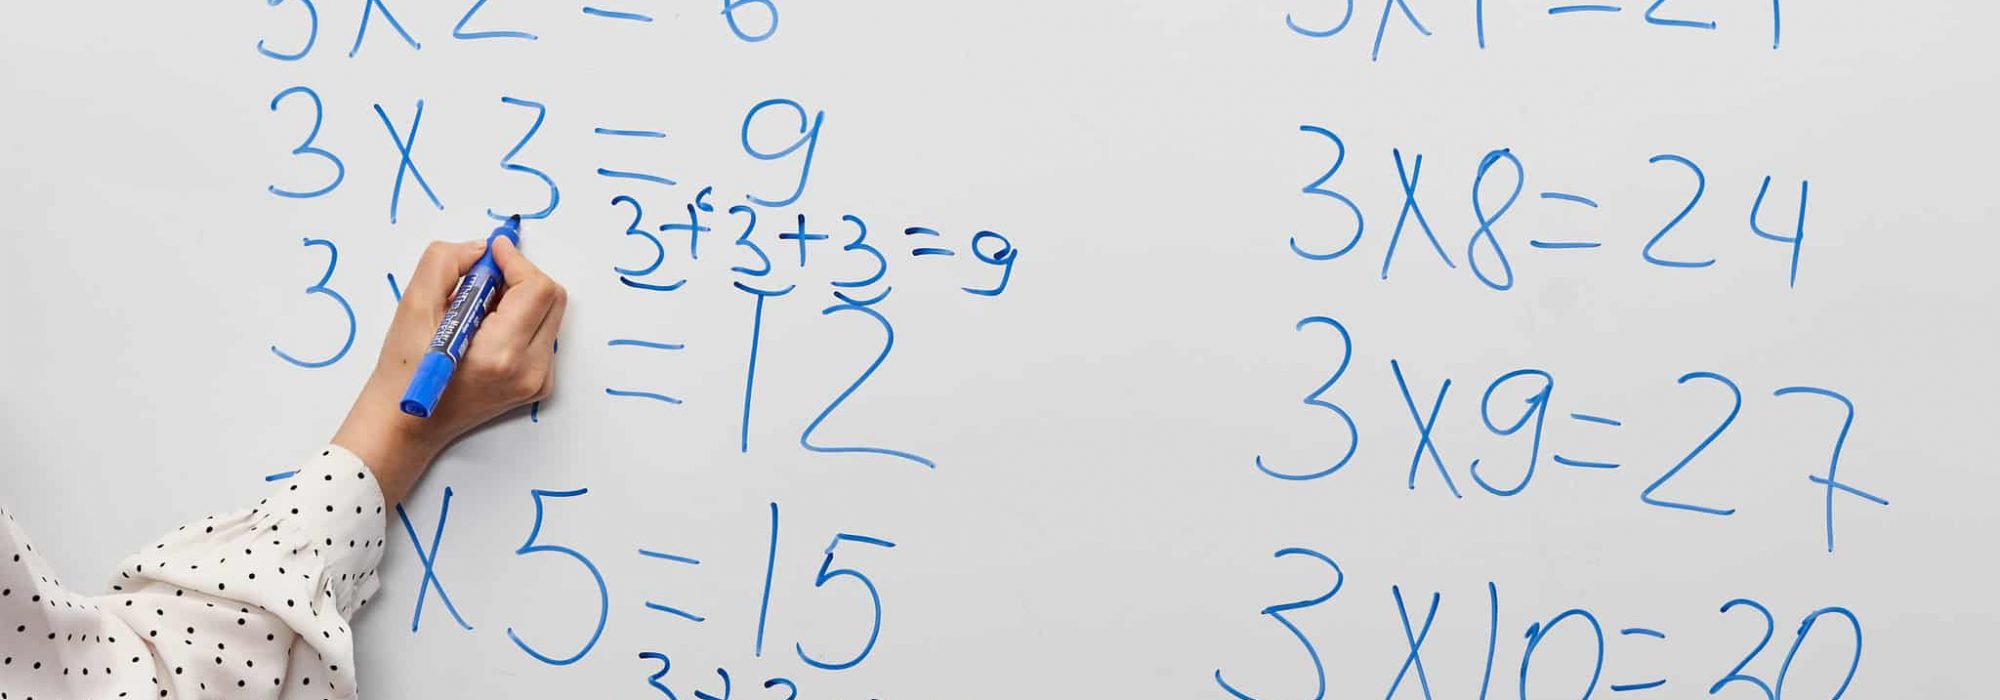 3 X 2 = 6
3 X 3 = 9
6
3 + 3 + 3 = 9
3 X = 12
X 5 = 15
3 X 7 = 21
3 X 8 = 24
3 X 9 = 27
3 X 10 = 30